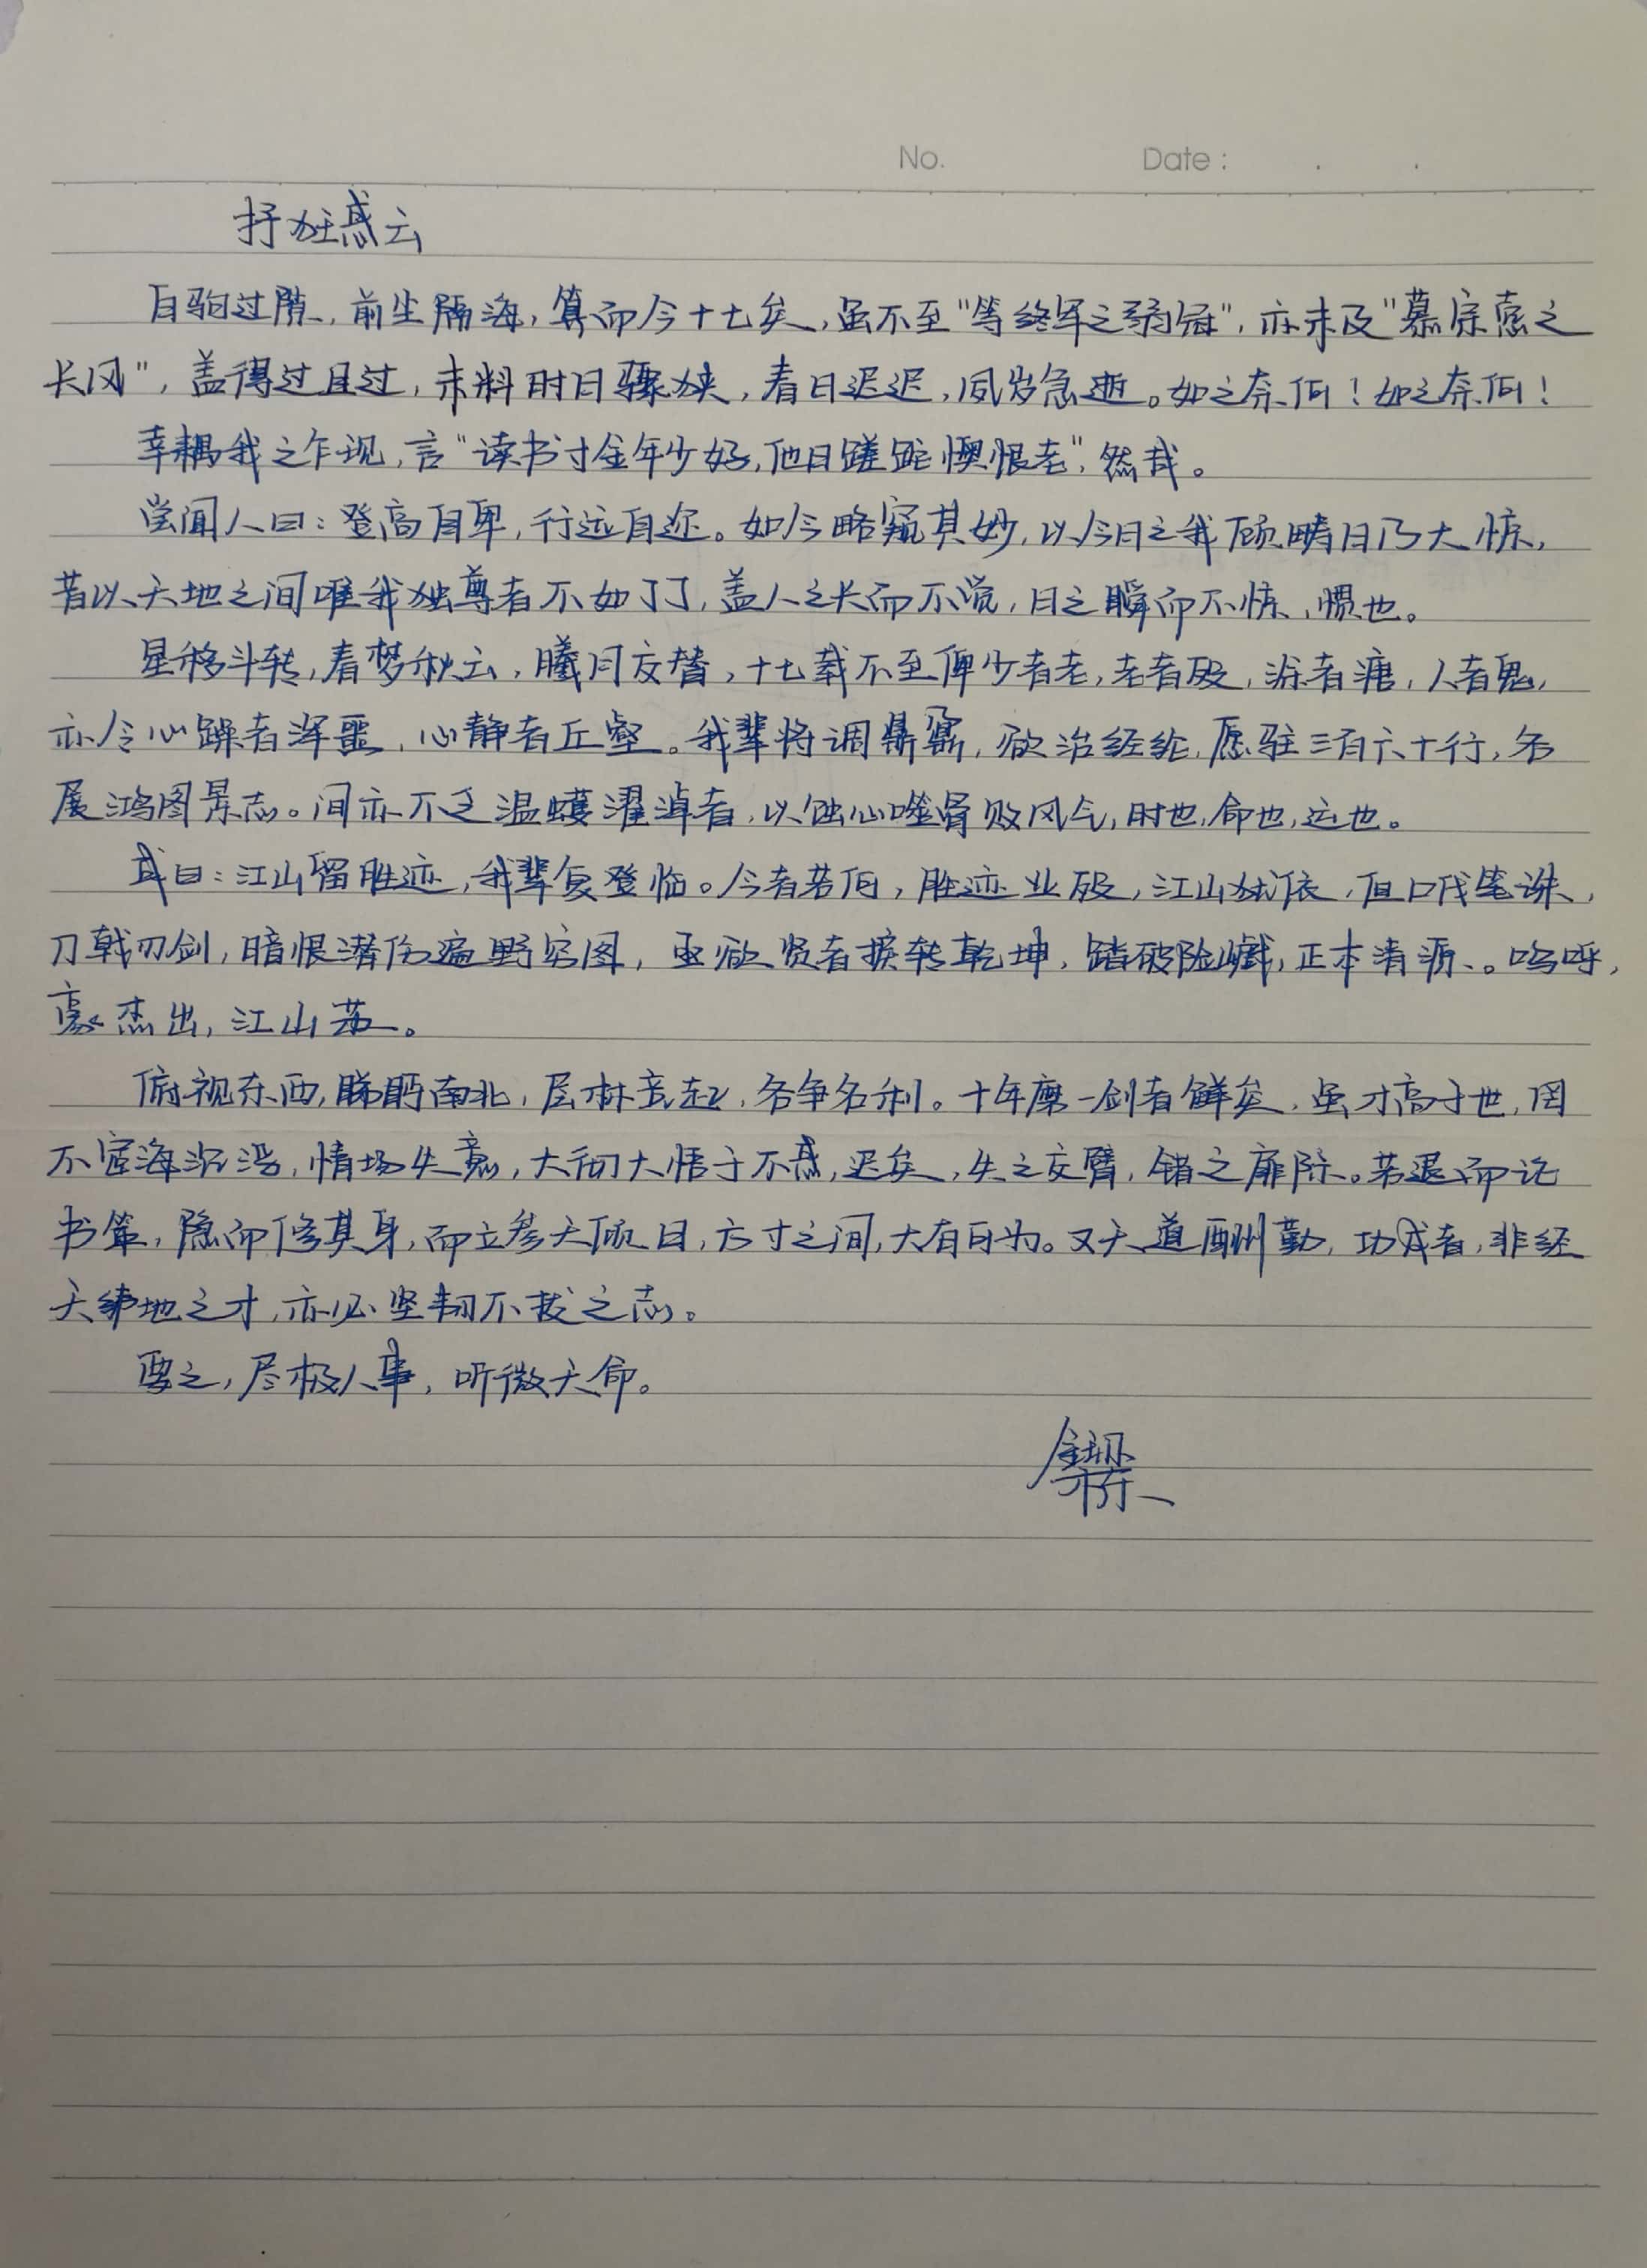 No. Date :
抒狂惑云
白驹过隙，前尘隔海，算而今十七矣，虽不至“等终军之弱冠”，亦未及“慕宗悫之
长风”，盖得过且过，未料时日骤狭，春日迟迟，夙岁急逝。如之奈何！如之奈何！
幸耦我之乍现，言“读书寸金年少好，他日蹉跎懊恨老”，然哉。
尝闻人曰：登高自卑，行远自迩。如今略窥其妙，以今日之我顾畴日乃大惊，
昔以天地之间唯我独尊者不如丁丁，盖人之长而不觉，日之瞬而不惊，惯也。
星移斗转，春梦秋云，曦月交替，十七载不至俾少者老，老者殁，溺者溏，人者鬼，
亦令心躁者浑噩，心静者丘壑。我辈将调鼎鼐，欲治经纶，愿驻三百六十行，各
展鸿图景志。间亦不乏温蠖濯淖者，以蚀心噬骨败风气，时也，命也，运也。
或曰：江山留胜迹，我辈复登临。今者若何，胜迹业殁，江山犹依，但口伐笔诛，
刀戟刃剑，暗恨潜伤遍野穷图，亟欲贤者捩转乾坤，踏破险巇，正本清源。呜呼，
豪杰出，江山苏。
俯视东西，睇眄南北，层林竞起，各争名利。十年磨一剑者鲜矣，虽才高于世，罔
不宦海沉浮，情场失意，大彻大悟于不惑，迟矣，失之交臂，错之扉际。若退而论
书策，隐而修其身，而立参天顷日，方寸之间，大有可为。又天道酬勤，功成者，非经
天纬地之才，亦必坚韧不拔之志。
要之，尽极人事，听微天命。